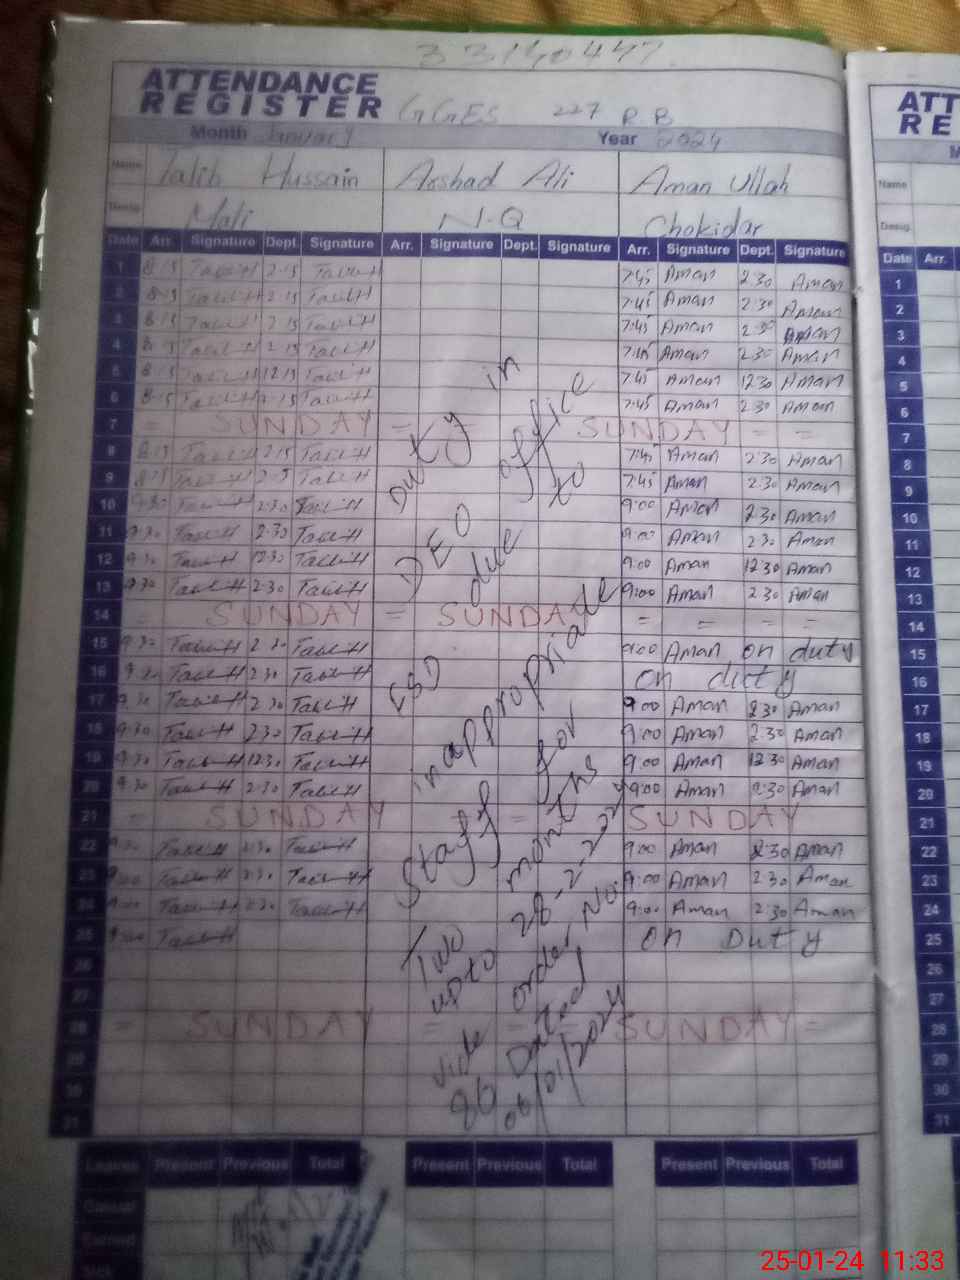 33140447
ATTENDANCE
REGISTER GGES 227 R.B
Month January Year 2024
Name Talib Hussain Arshad Ali Aman Ullah
Desig. Mali N-Q Chokidar
Date Arr. Signature Dept. Signature Arr. Signature Dept. Signature Arr. Signature Dept. Signature
1 8:15 2:15 7:45 Aman 2:30 Aman
2 8:15 2:15 7:45 Aman 2:30 Aman
3 8:15 2:15 7:45 Aman 2:30 Aman
4 8:15 2:15 7:45 Aman 2:30 Aman
5 8:15 12:15 7:45 Aman 12:30 Aman
6 8:15 2:15 7:45 Aman 2:30 Aman
7 = SUNDAY = SUNDAY = =
8 8:15 2:15 7:45 Aman 2:30 Aman
9 8:15 2:15 7:45 Aman 2:30 Aman
10 9:30 2:30 9:00 Aman 2:30 Aman
11 9:30 2:30 9:00 Aman 2:30 Aman
12 9:30 12:30 9:00 Aman 12:30 Aman
13 9:30 2:30 9:00 Aman 2:30 Aman
14 = SUNDAY = SUNDAY = = = =
15 9:30 2:30 9:00 Aman on duty
16 9:30 2:30 on duty
17 9:30 2:30 9:00 Aman 2:30 Aman
18 9:30 2:30 9:00 Aman 2:30 Aman
19 9:30 12:30 9:00 Aman 12:30 Aman
20 9:30 2:30 9:00 Aman 2:30 Aman
21 = SUNDAY = SUNDAY
22 9:30 2:30 9:00 Aman 2:30 Aman
23 9:00 2:30 9:00 Aman 2:30 Aman
24 9:00 2:30 9:00 Aman 2:30 Aman
25 9:00 on Duty
26
27
28 = SUNDAY = = SUNDAY =
29
30
31
Duty in
DEO office
due to
ESD
inappropriade
Staff for
Two months
upto 28-2-2024
vide order No.
86 Dated
06/01/2024
Leaves Present Previous Total Present Previous Total Present Previous Total
Casual
Earned
ATT
RE
M
Name
Desig.
Date Arr.
1
2
3
4
5
6
7
8
9
10
11
12
13
14
15
16
17
18
19
20
21
22
23
24
25
26
27
28
29
30
31
25-01-24 11:33